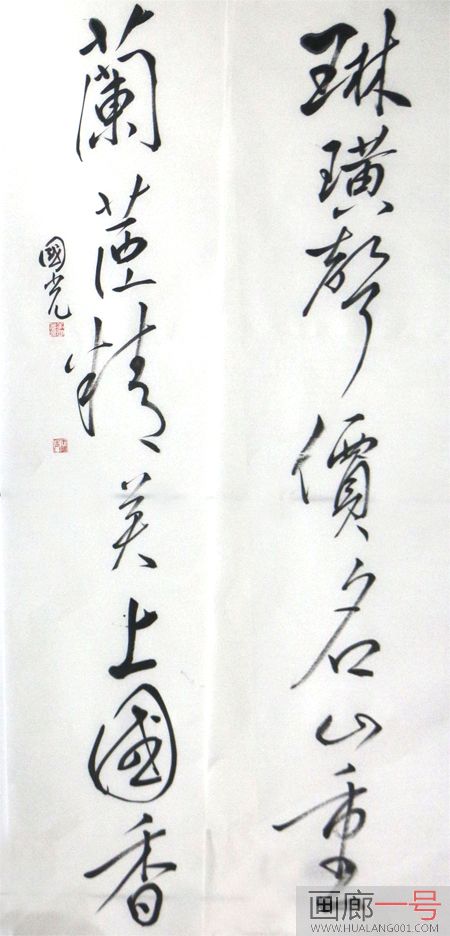 琳璜聲價名山重
蘭茝精英上國香
國光
画廊一号
WWW.HUALANG001.COM